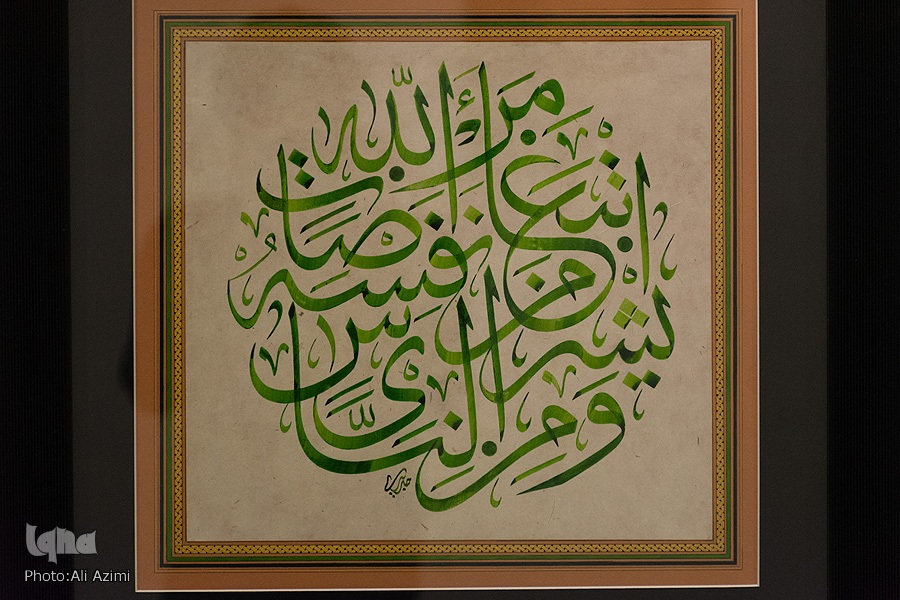 وَمِنَ النَّاسِ مَنْ يَشْرِي نَفْسَهُ ابْتِغَاءَ مَرْضَاتِ اللَّهِ
iqna
Photo:Ali Azimi